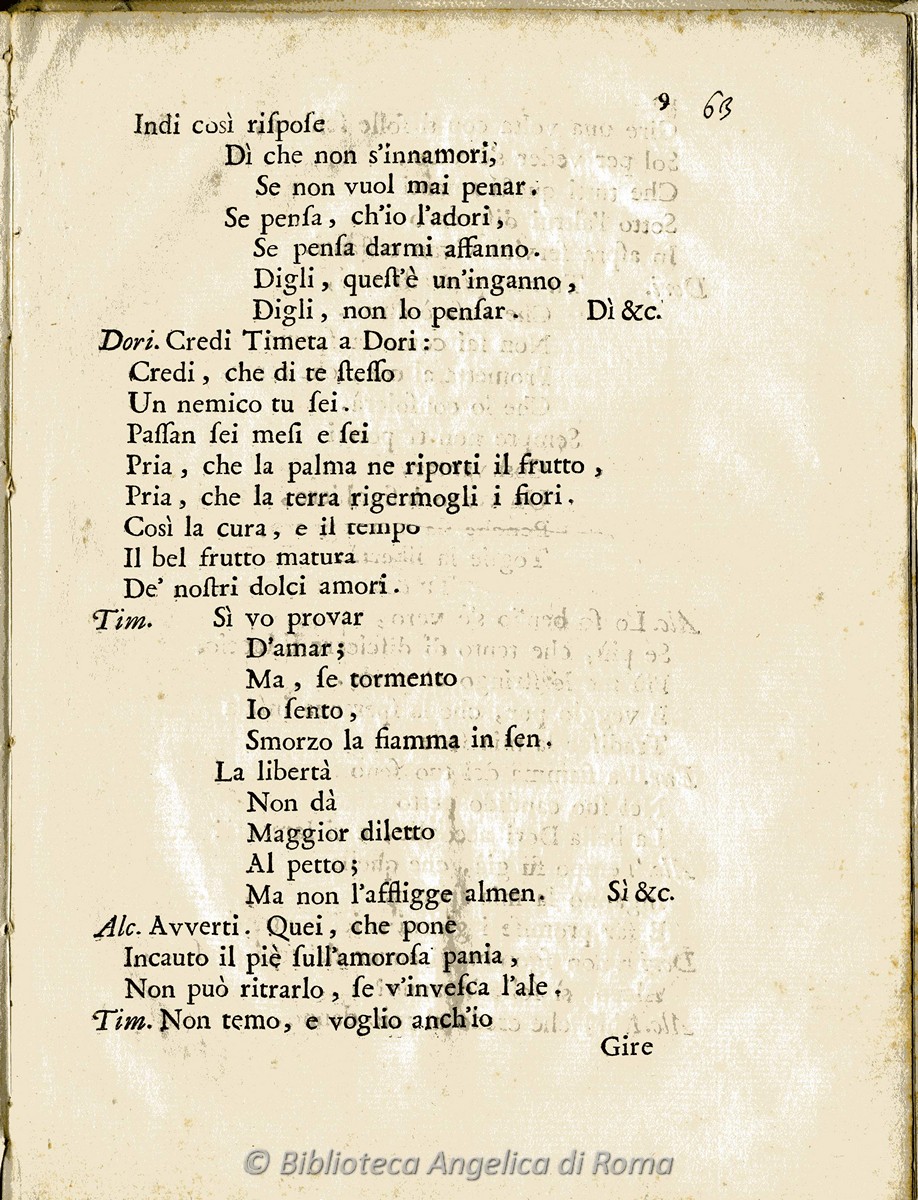 9 63
Indi così riſpoſe
Dì che non s'innamori,
Se non vuol mai penar.
Se penſa, ch'io l'adori,
Se penſa darmi affanno.
Digli, queſt'è un'inganno,
Digli, non lo penſar. Dì &c.
Dori. Credi Timeta a Dori:
Credi, che di te ſteſſo
Un nemico tu ſei.
Paſſan ſei meſi e ſei
Pria, che la palma ne riporti il frutto,
Pria, che la terra rigermogli i fiori.
Così la cura, e il tempo
Il bel frutto matura
De' noſtri dolci amori.
Tim. Sì vo provar
D'amar;
Ma, ſe tormento
Io ſento,
Smorzo la fiamma in ſen.
La libertà
Non dà
Maggior diletto
Al petto;
Ma non l'affligge almen. Sì &c.
Alc. Avverti. Quei, che pone
Incauto il piè ſull'amoroſa pania,
Non può ritrarlo, ſe v'inveſca l'ale.
Tim. Non temo, e voglio anch'io
Gire
© Biblioteca Angelica di Roma